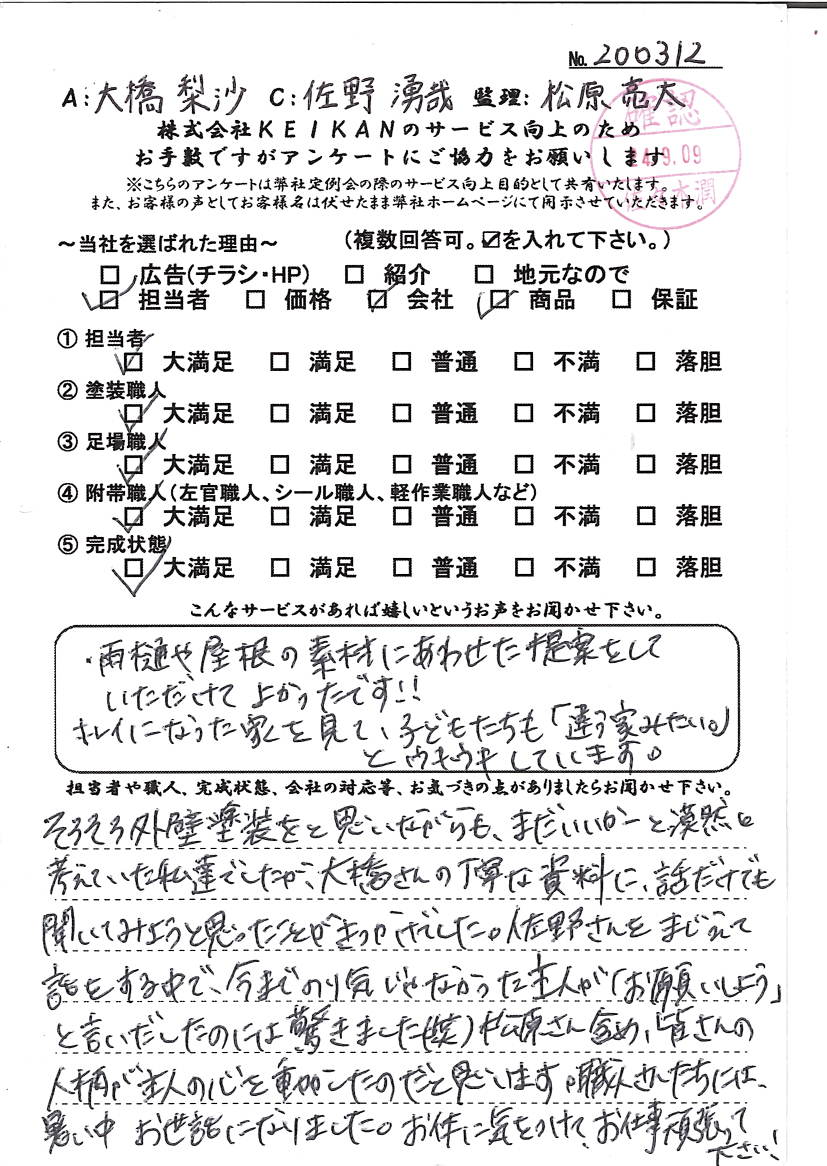 No. 200312
A:大橋 梨沙 C:佐野 湧哉 監理:松原 亮太
確認
株式会社KEIKANのサービス向上のため
お手数ですがアンケートにご協力をお願いします
24.9.09
※こちらのアンケートは弊社定例会の際のサービス向上目的として共有いたします。
また、お客様の声としてお客様名は伏せたまま弊社ホームページにて開示させていただきます。
佐々木潤
~当社を選ばれた理由~ (複数回答可。☑を入れて下さい。)
□ 広告(チラシ・HP) □ 紹介 □ 地元なので
☑ 担当者 □ 価格 ☑ 会社 ☑ 商品 □ 保証
① 担当者
☑ 大満足 □ 満足 □ 普通 □ 不満 □ 落胆
② 塗装職人
☑ 大満足 □ 満足 □ 普通 □ 不満 □ 落胆
③ 足場職人
☑ 大満足 □ 満足 □ 普通 □ 不満 □ 落胆
④ 附帯職人(左官職人、シール職人、軽作業職人など)
☑ 大満足 □ 満足 □ 普通 □ 不満 □ 落胆
⑤ 完成状態
☑ 大満足 □ 満足 □ 普通 □ 不満 □ 落胆
こんなサービスがあれば嬉しいというお声をお聞かせ下さい。
・雨樋や屋根の素材にあわせた提案をして
いただけてよかったです!!
キレイになった家を見て、子どもたちも「違う家みたい。」
とウキウキしています。
担当者や職人、完成状態、会社の対応等、お気づきの点がありましたらお聞かせ下さい。
そろそろ外壁塗装をと思いながらも、まだいいかーと漠然と
考えていた私達でしたが、大橋さんの丁寧な資料に、話だけでも
聞いてみようと思ったことがきっかけでした。佐野さんをまじえて
話をする中で、今までのり気じゃなかった主人が「お願いしよう」
と言いだしたのには驚きました(笑)松原さん含め、皆さんの
人柄が主人の心を動かしたのだと思います。職人さんたちには、
暑い中 お世話になりました。お体に気をつけて、お仕事頑張って
下さい!